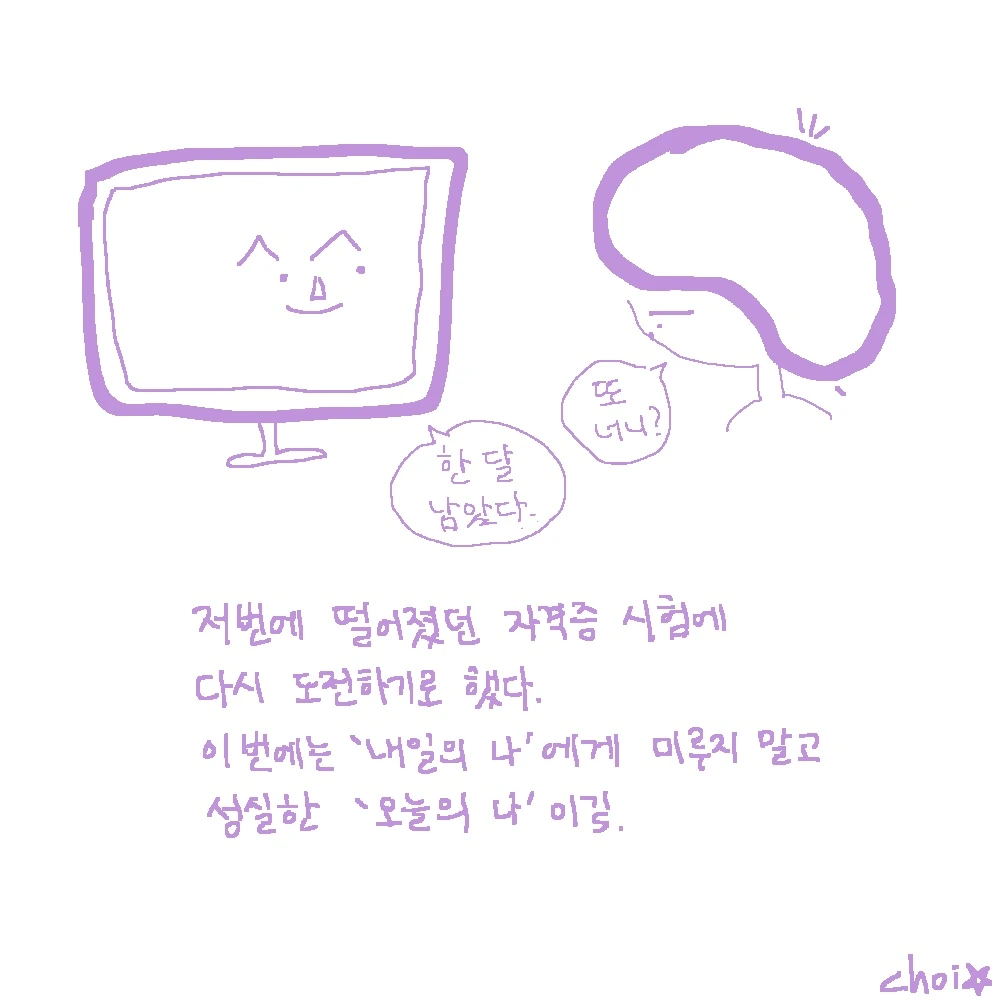 또
너니?
한 달
남았다.
저번에 떨어졌던 자격증 시험에
다시 도전하기로 했다.
이번에는 '내일의 나'에게 미루지 말고
성실한 '오늘의 나'이길.
choi